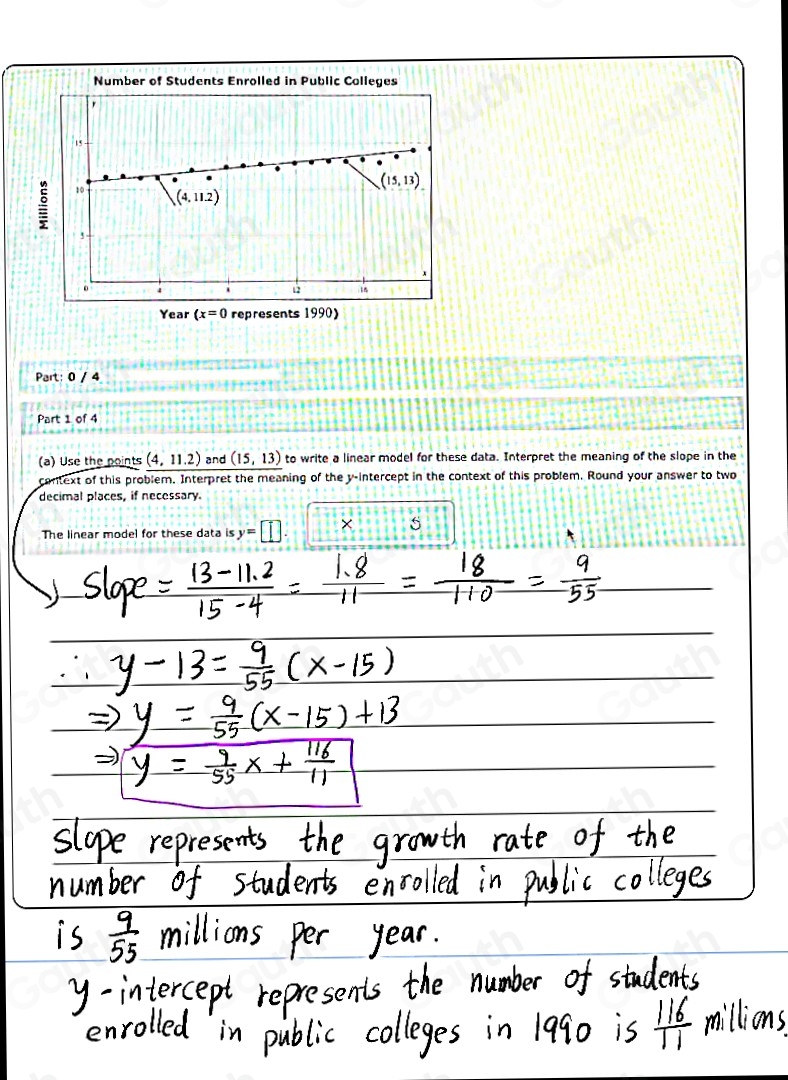 Number of Students Enrolled in Public Colleges
y
15
10
5
Millions
(4, 11.2)
(15, 13)
x
0 4 8 12 16
Year (x=0 represents 1990)
Part: 0 / 4
Part 1 of 4
(a) Use the points (4, 11.2) and (15, 13) to write a linear model for these data. Interpret the meaning of the slope in the
context of this problem. Interpret the meaning of the y-intercept in the context of this problem. Round your answer to two
decimal places, if necessary.
The linear model for these data is y = .
× 5
Slope = (13-11.2)/(15-4) = 1.8/11 = 18/110 = 9/55
∴ y-13 = 9/55 (x-15)
⇒ y = 9/55 (x-15)+13
⇒ y = 9/55 x + 116/11
slope represents the growth rate of the
number of students enrolled in public colleges
is 9/55 millions per year.
y-intercept represents the number of students
enrolled in public colleges in 1990 is 116/11 millions.
Gauth